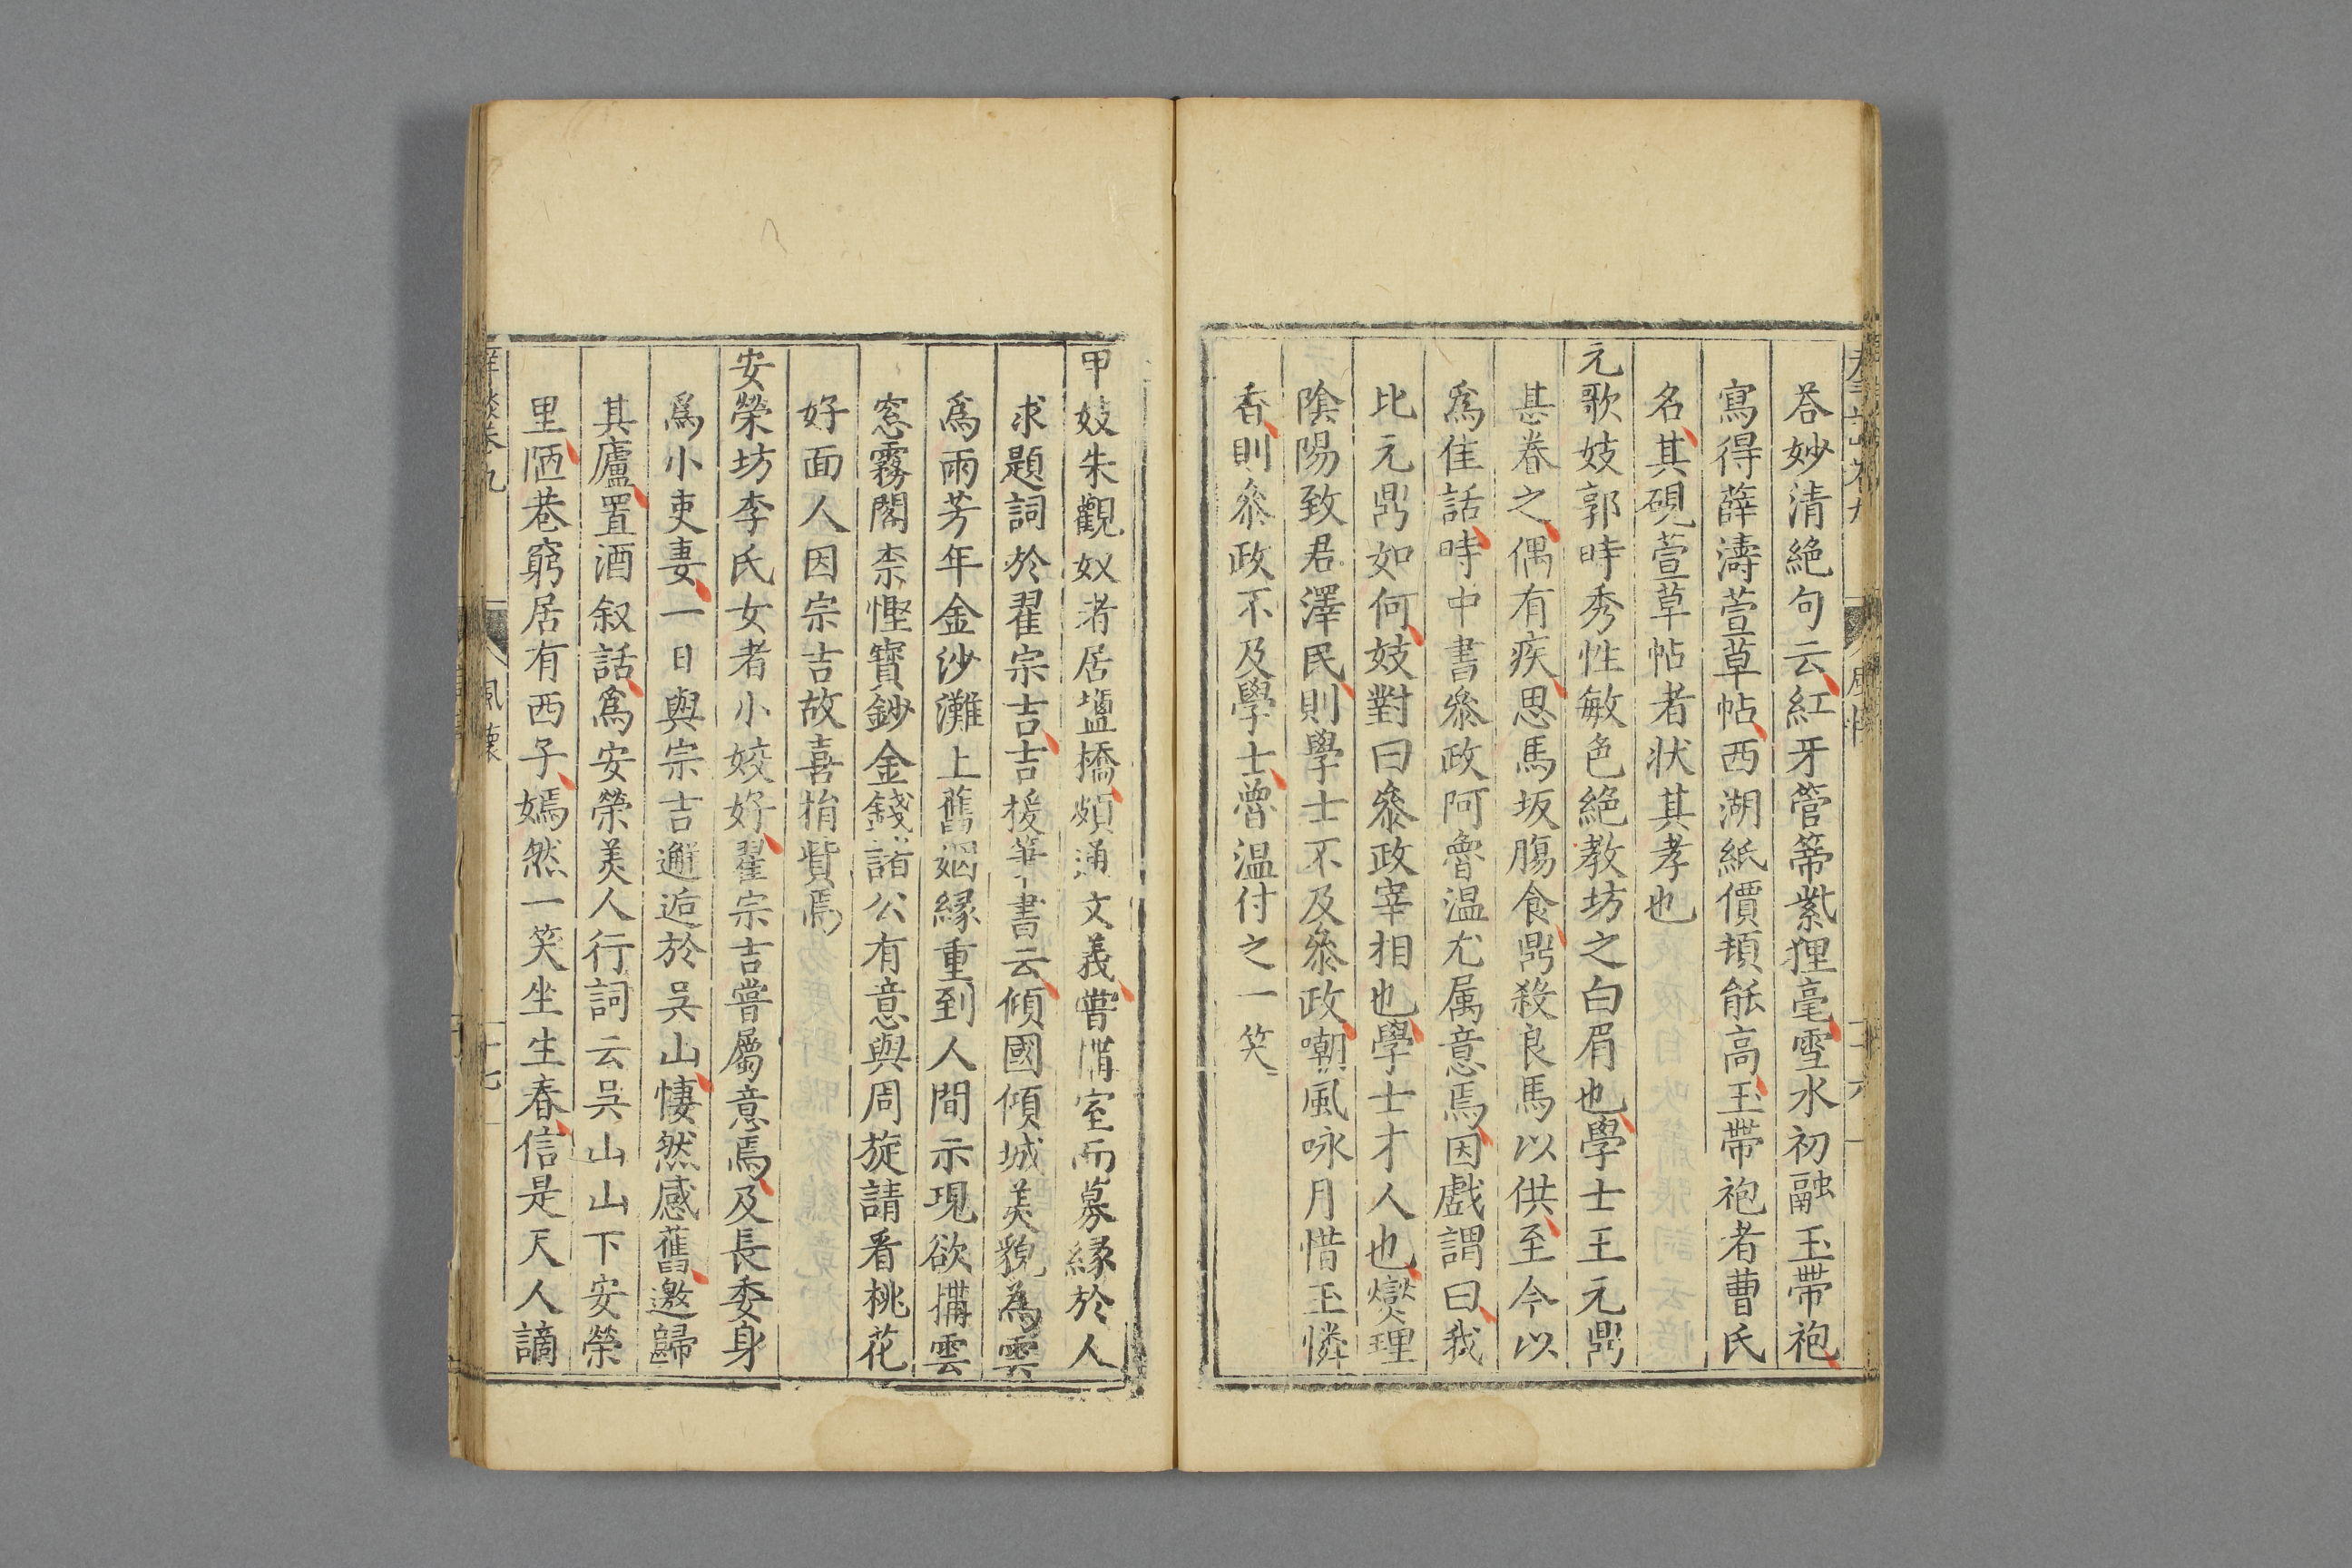 荅妙清絶句云紅牙管箒紫狸毫雪水初融玉帶袍
寫得薛濤萱草帖西湖紙價頓能高玉帶袍者曹氏
名其硯萱草帖者状其孝也
元歌妓郭時秀性敏色絶教坊之白眉也學士王元鼎
甚眷之偶有疾思馬坂膓食鼎殺良馬以供至今以
爲佳話時中書叅政阿魯温尤属意焉因戲謂曰我
比元鼎如何妓對曰叅政宰相也學士才人也燮理
陰陽致君澤民則學士不及叅政嘲風咏月惜玉憐
香則叅政不及學士魯温付之一笑
甲妓朱觀奴者居塩橋頗通文義嘗搆室而募縁於人
求題詞於翟宗吉吉援筆書云傾國傾城美貌為雲
爲雨芳年金沙灘上舊姻縁重到人間示現欲搆雲
窓霧閣柰慳寳鈔金錢諸公有意與周旋請看桃花
好面人因宗吉故喜捐貲焉
安榮坊李氏女者小姣好翟宗吉嘗屬意焉及長委身
爲小吏妻一日與宗吉邂逅於吳山悽然感舊邀歸
其廬置酒叙話爲安榮美人行詞云吳山山下安榮
里陋巷窮居有西子嫣然一笑坐生春信是天人謫
卷九
十七